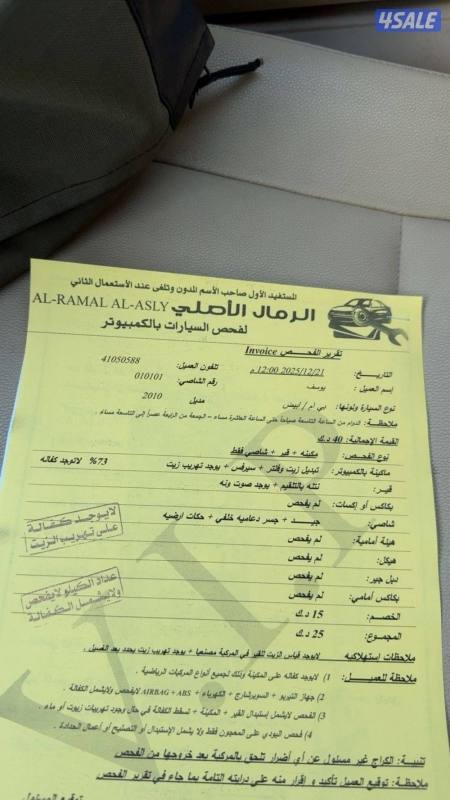 4SALE
المستفيد الأول صاحب الأسم المدون وتلغى عند الأستعمال الثاني
الرمال الأصلي AL-RAMAL AL-ASLY
لفحص السيارات بالكمبيوتر
تقرير الفحص Invoice
التاريخ: 2025/12/21 12:00 م
تلفون العميل: 41050588
اسم العميل: يوسف
رقم الشاصي: 010101
نوع السيارة ولونها: بي أم / أبيض
مديل 2010
ملاحظة: الدوام من الساعة التاسعة صباحا حتى الساعة العاشرة مساء - الجمعة من الرابعة عصرا إلى التاسعة مساء.
القيمة الإجمالية: 40 د.ك
نوع الفحص: مكينه + قير + شاصي فقط
ماكينة بالكمبيوتر: تبديل زيت وفلتر + سيرفس + يوجد تهريب زيت 73% لاتوجد كفاله
قير: نتله بالتلقيم + يوجد صوت ونه
بكاكس أو إكسات: لم يفحص
شاصي: جيد + جسر دعاميه خلفي + حكات ارضيه
هيئة أمامية: لم يفحص
هيكل: لم يفحص
دبل جير: لم يفحص
بكاكس أمامي: لم يفحص
الخصم: 15 د.ك
المجموع: 25 د.ك
لايوجد كفالة
على تهريب الزيت
عداد الكيلو لايفحص
ولايشمل الكفالة
VIP
ملاحظات إستهلاكيه لايوجد قياس الزيت للقير في المركبة مصنعيا + يوجد تهريب زيت يحدد بعد الغسيل.
ملاحظة للعميل: 1) لايوجد كفاله على المكينة وذلك لجميع أنواع المركبات الرياضية.
2) جهاز التيربو + السوبرشارج + الكهرباء + AIRBAG + ABS لايفحص ولايشمل الكفالة.
3) الفحص لايشمل إستبدال القير + المكينة + تسقط الكفالة في حال وجود تهريبات زيوت أو ماء.
4) فحص البودي على المعجون فقط ولا يشمل الإستبدال أو التصليح أو أعمال الحدادة.
تنبيه: الكراج غير مسئول عن أي أضرار تلحق بالمركبة بعد خروجها من الفحص
ملاحظة: توقيع العميل تأكيد و إقرار منه على درايته التامة بما جاء في تقرير الفحص
توقيع المسئول